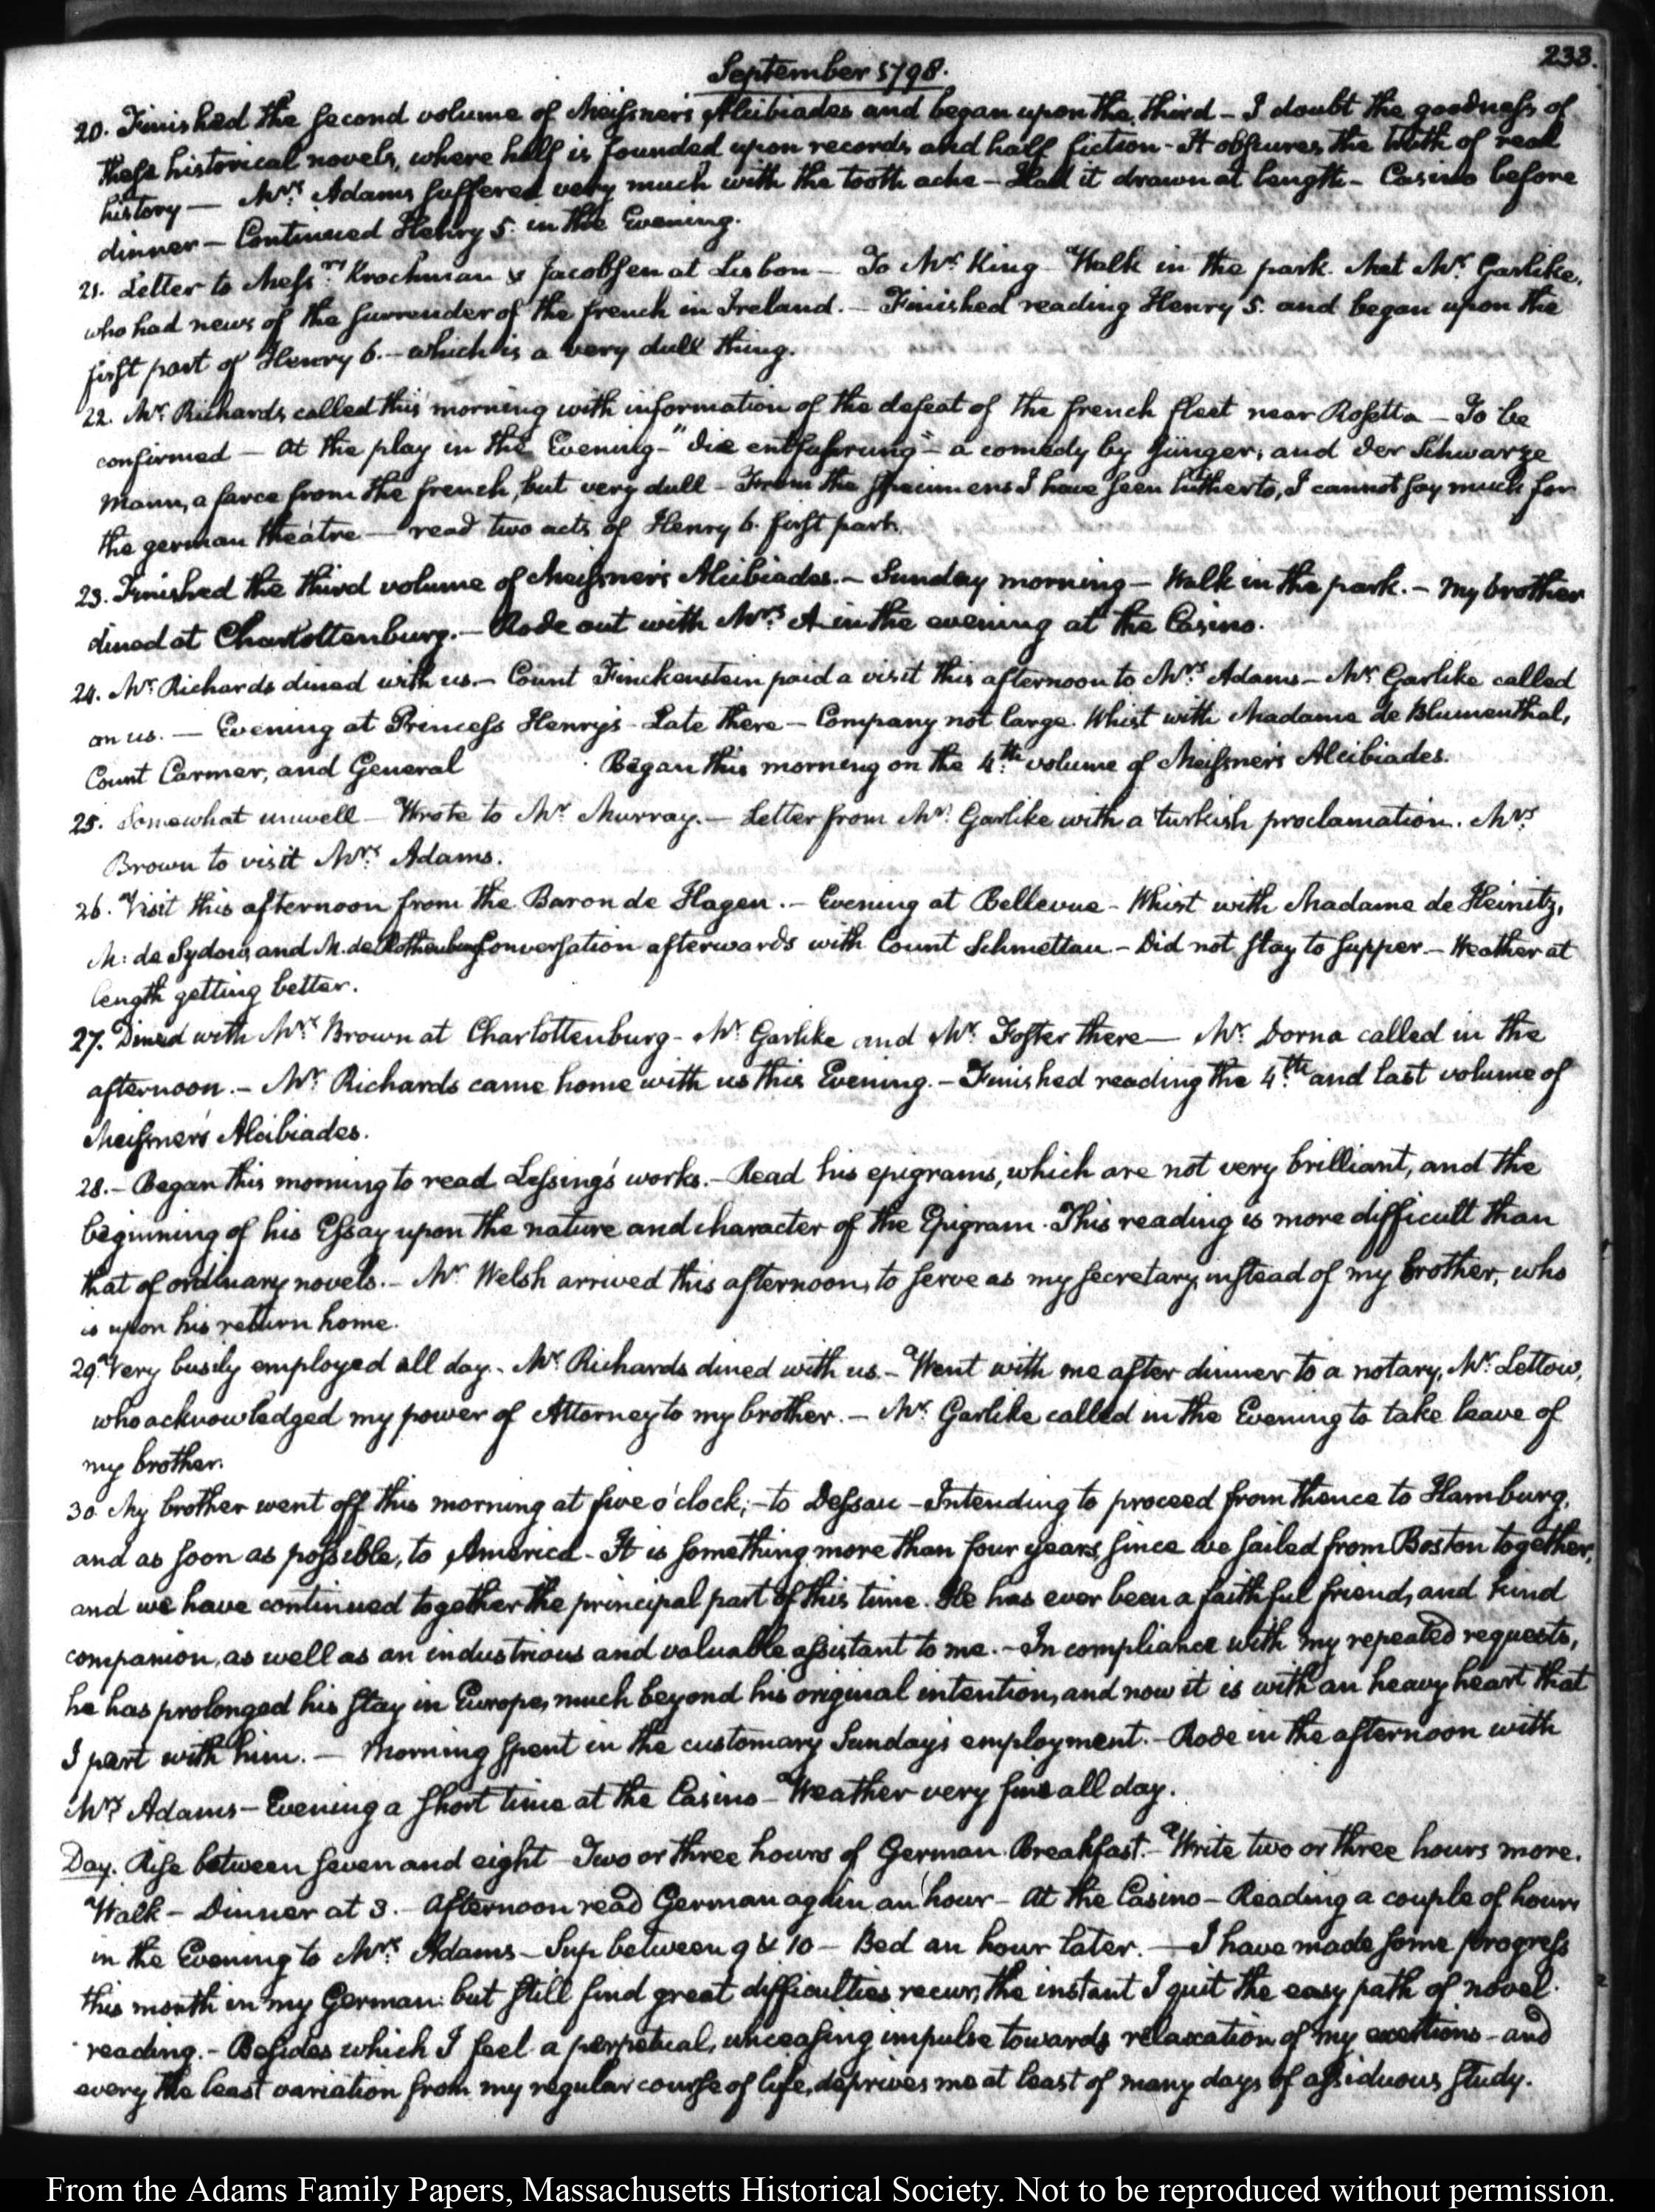 233.
September 1798.
20. Finished the second volume of Meissner's Alcibiades and began upon the third – I doubt the goodness of
these historical novels, where half is founded upon records and half fiction – It obscures the truth of real
history — Mrs. Adams suffered very much with the tooth ache – Had it drawn at length – Casino before
dinner – Continued Henry 5. in the Evening.
21. Letter to Messrs. Krochman & Jacobsen at Lisbon – To Mr. King – Walk in the park. Met Mr. Garlike,
who had news of the surrender of the french in Ireland. – Finished reading Henry 5. and began upon the
first part of Henry 6. – which is a very dull thing.
22. Mr. Richards called this morning with information of the defeat of the french fleet near Rosetta – To be
confirmed — At the play in the Evening – "Die entführung" – a comedy by Jünger, and der Schwarze
Mann, a farce from the french, but very dull – From the specimens I have seen hitherto, I cannot say much for
the german theátre — read two acts of Henry 6. first part.
23. Finished the third volume of Meissner's Alcibiades. – Sunday morning – Walk in the park. – My brother
dined at Charlottenburg. – Rode out with Mrs. A – in the evening at the Casino.
24. Mr. Richards dined with us. – Count Finckenstein paid a visit this afternoon to Mrs. Adams – Mr. Garlike called
on us. — Evening at Princess Henry's – Late there – Company not large. Whist with Madame de Blumenthal,
Count Carmer, and General Began this morning on the 4th. volume of Meissner's Alcibiades.
25. Somewhat unwell – Wrote to Mr. Murray. – Letter from Mr. Garlike with a turkish proclamation. Mrs.
Brown to visit Mrs. Adams.
26. Visit this afternoon from the Baron de Hagen. – Evening at Bellevue – Whist with Madame de Heinitz,
M: de Sydow, and M. de Rothenburg Conversation afterwards with Count Schmettau. – Did not stay to supper. – Weather at
length getting better.
27. Dined with Mrs. Brown at Charlottenburg – Mr. Garlike and Mr. Foster there — Mr. Dorna called in the
afternoon. – Mr. Richards came home with us this Evening. – Finished reading the 4th. and last volume of
Meissner's Alcibiades.
28. – Began this morning to read Lessing's works. – Read his epigrams, which are not very brilliant, and the
beginning of his Essay upon the nature and character of the Epigram. This reading is more difficult than
that of ordinary novels. – Mr. Welsh arrived this afternoon, to serve as my secretary, instead of my brother, who
is upon his return home.
29. Very busily employed all day. Mr. Richards dined with us. – Went with me after dinner to a notary, Mr. Lettow,
who acknowledged my power of Attorney to my brother. – Mr. Garlike called in the Evening to take leave of
my brother.
30. My brother went off this morning at five o'clock; – to Dessau – Intending to proceed from thence to Hamburg,
and as soon as possible, to America – It is something more than four years, since we sailed from Boston together,
and we have continued together the principal part of this time. He has ever been a faithful friend, and kind
companion, as well as an industrious and valuable assistant to me. – In compliance with my repeated requests,
he has prolonged his stay in Europe, much beyond his original intention, and now it is with an heavy heart that
I part with him. — Morning spent in the customary Sunday's employment. – Rode in the afternoon with
Mrs. Adams – Evening a short time at the Casino – Weather very fine all day.
Day. Rise between seven and eight – Two or three hours of German. Breakfast. – Write two or three hours more.
Walk – Dinner at 3. – Afternoon read German again an hour – At the Casino – Reading a couple of hours
in the Evening to Mrs. Adams – Sup between 9 & 10 – Bed an hour later. — I have made some progress
this month in my German: but still find great difficulties recur, the instant I quit the easy path of novel
reading. – Besides which I feel a perpetual, unceasing impulse towards relaxation of my exertions – and
every the least variation from my regular course of life, deprives me at least of many days of assiduous study.
From the Adams Family Papers, Massachusetts Historical Society. Not to be reproduced without permission.